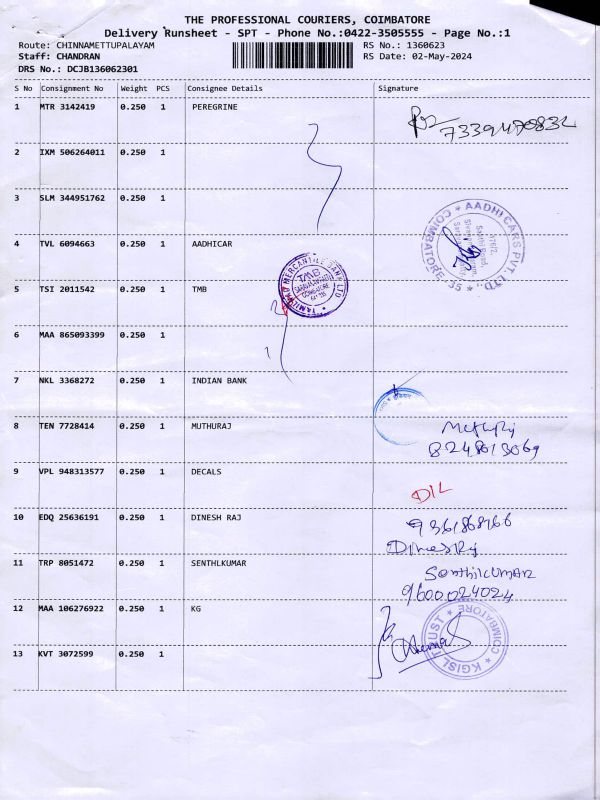 THE PROFESSIONAL COURIERS, COIMBATORE
Delivery Runsheet - SPT - Phone No.:0422-3505555 - Page No.:1
Route: CHINNAMETTUPALAYAM RS No.: 1360623
Staff: CHANDRAN RS Date: 02-May-2024
DRS No.: DCJB136062301
S No Consignment No Weight PCS Consignee Details Signature
1 MTR 3142419 0.250 1 PEREGRINE
2 IXM 506264011 0.250 1
3 SLM 344951762 0.250 1
AADHI CARS PVT. LTD.
COIMBATORE - 35
4 TVL 6094663 0.250 1 AADHICAR
TAMILNAD MERCANTILE BANK LTD
TMB
5 TSI 2011542 0.250 1 TMB
6 MAA 865093399 0.250 1
7 NKL 3368272 0.250 1 INDIAN BANK
8 TEN 7728414 0.250 1 MUTHURAJ
9 VPL 948313577 0.250 1 DECALS
D/L
10 EDQ 25636191 0.250 1 DINESH RAJ
11 TRP 8051472 0.250 1 SENTHLKUMAR
Senthilkumar
9600024024
12 MAA 106276922 0.250 1 KG
KGISL TRUST COIMBATORE
13 KVT 3072599 0.250 1